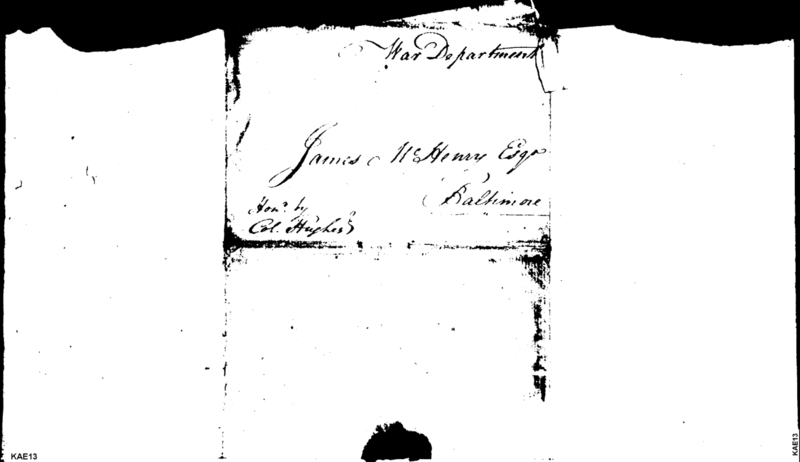 War Department
James McHenry Esqr
Baltimore
Hond. by
Col. Hughes
KAE13
KAE13